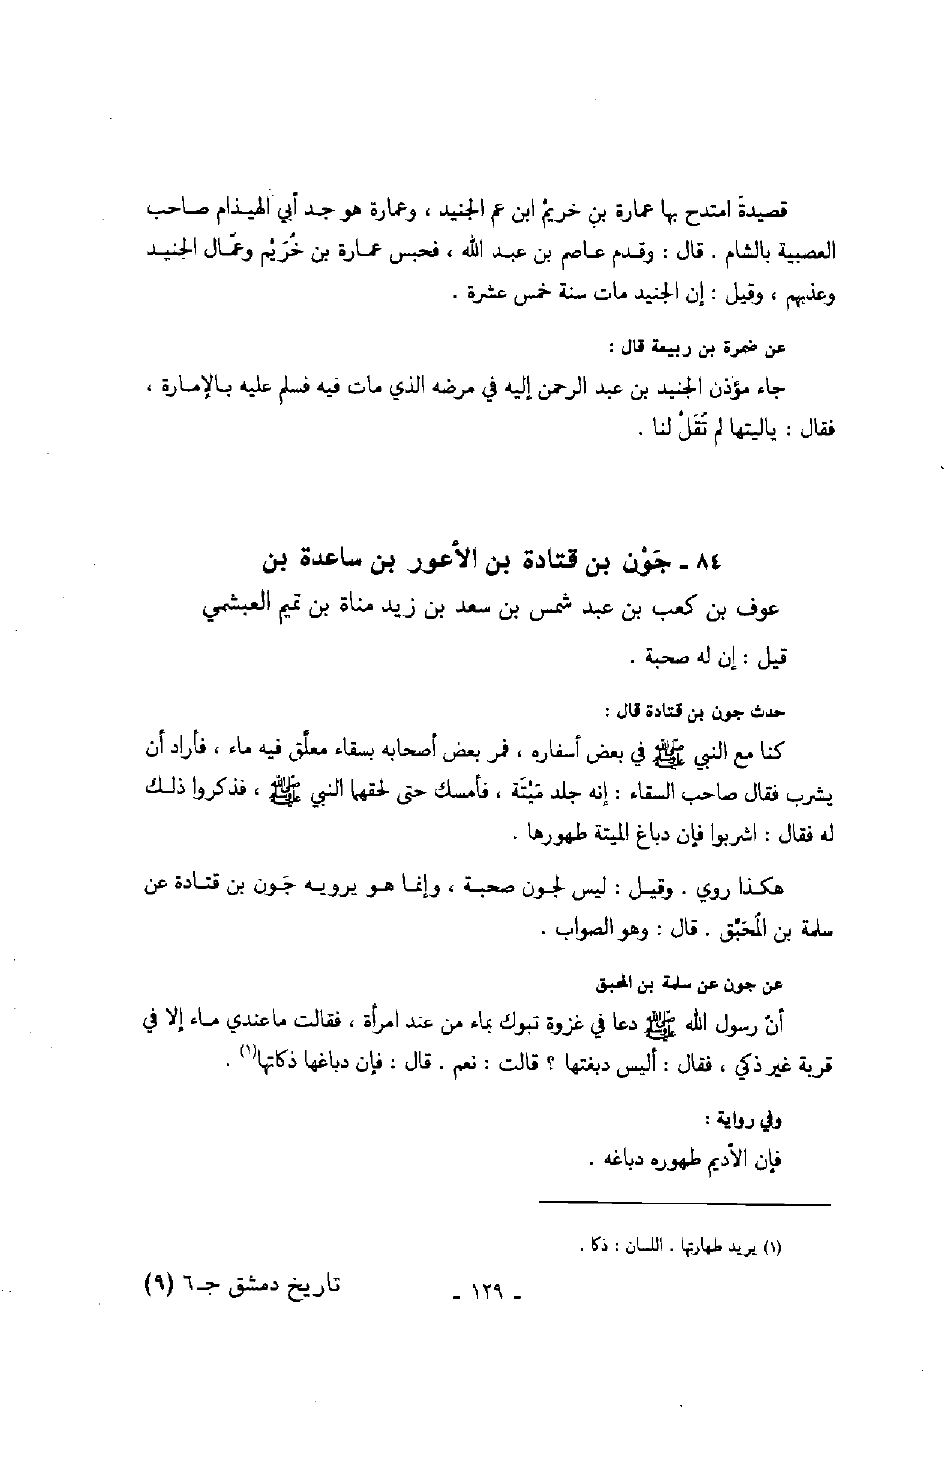 قصيدة امتدح بها عمارة بن خريم ابن عم الجنيد ، وعمارة هو جد أبي الهيذام صاحب
العصبية بالشام . قال : وقدم عاصم بن عبد الله ، فحبس عمارة بن خُرَيْم وعمّال الجنيد
وعذبهم ، وقيل : إن الجنيد مات سنة خمس عشرة .
عن ضمرة بن ربيعة قال :
جاء مؤذن الجنيد بن عبد الرحمن إليه في مرضه الذي مات فيه فسلم عليه بالإمارة ،
فقال : ياليتها لم تُقَلْ لنا .
٨٤ - جَوْن بن قتادة بن الأعور بن ساعدة بن
عوف بن كعب بن عبد شمس بن سعد بن زيد مناة بن تميم العبشمي
قيل : إن له صحبة .
حدث جون بن قتادة قال :
كنا مع النبي ﷺ في بعض أسفاره ، فمر بعض أصحابه بسقاء معلّق فيه ماء ، فأراد أن
يشرب فقال صاحب السقاء : إنه جلد مَيْتَة ، فأمسك حتى لحقها النبي ﷺ ، فذكروا ذلك
له فقال : اشربوا فإن دباغ الميتة طهورها .
هكذا روي . وقيل : ليس لجون صحبة ، وإنما هو يرويه جَون بن قتادة عن
سلمة بن المُحَبَّق . قال : وهو الصواب .
عن جون عن سلمة بن المحبق
أنّ رسول الله ﷺ دعا في غزوة تبوك بماء من عند امرأة ، فقالت ماعندي ماء إلا في
قربة غير ذكي ، فقال : أليس دبغتها ؟ قالت : نعم . قال : فإن دباغها ذكاتها(١) .
وفي رواية :
فإن الأديم طهوره دباغه .
(١) يريد طهارتها . اللسان : ذكا .
- ١٢٩ -
تاريخ دمشق جـ٦ (٩)